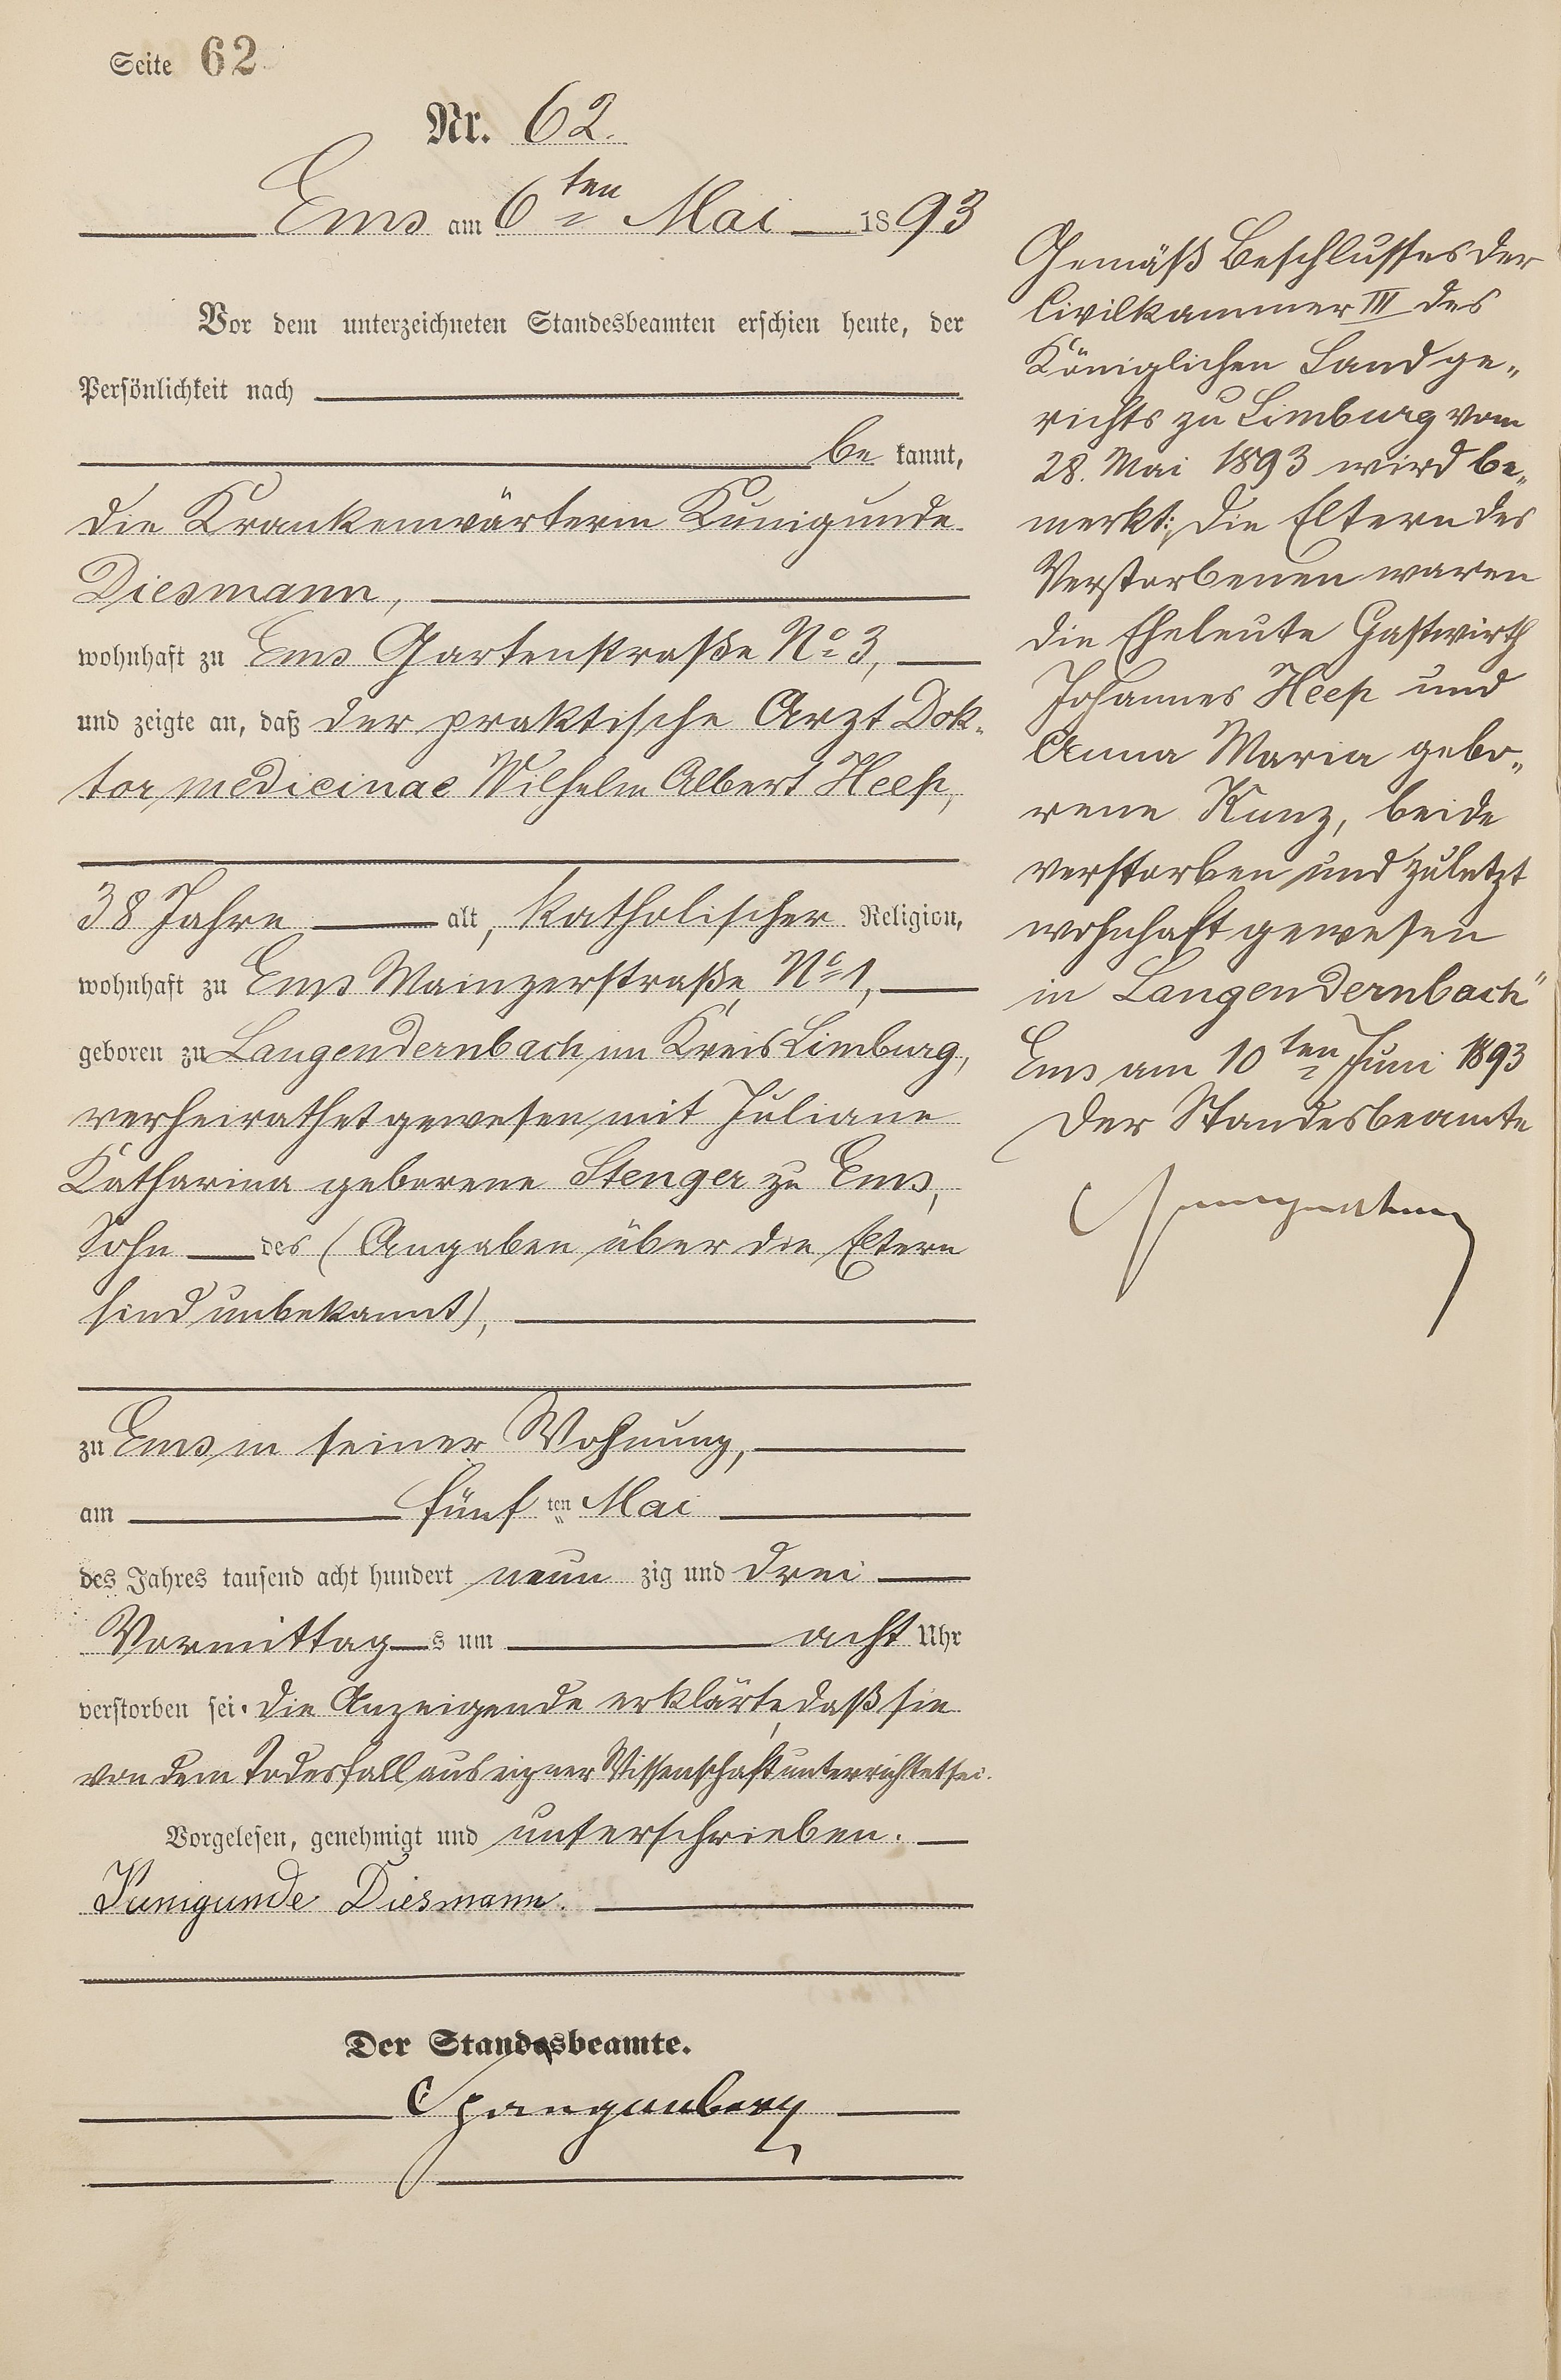 Seite 62
Nr. 62.
Ems am 6ten Mai 1893
Vor dem unterzeichneten Standesbeamten erschien heute, der
Persönlichkeit nach
be kannt,
die Krankenwärterin Kunigunde
Diesmann,
wohnhaft zu Ems Gartenstraße No 3,
und zeigte an, daß der praktische Arzt Dok-
tor medicinae Wilhelm Albert Heep,
38 Jahre alt, katholischer Religion,
wohnhaft zu Ems Mainzerstraße No 1,
geboren zu Langendernbach im Kreis Limburg,
verheirathet gewesen mit Juliane
Katharina geborene Stenger zu Ems,
Sohn des (Angaben über die Eltern
sind unbekannt),
zu Ems in seiner Wohnung,
am fünf ten Mai
des Jahres tausend acht hundert neun zig und drei
Vormittag s um acht Uhr
verstorben sei. Die Anzeigende erklärte, daß sie
von dem Todesfall aus eigner Wissenschaft unterrichtet sei.
Vorgelesen, genehmigt und unterschrieben.
Kunigunde Diesmann.
Der Standesbeamte.
Spangenberg
Gemäß Beschlusses der
Civilkammer III des
Königlichen Landge„
richts zu Limburg vom
28. Mai 1893 wird be„
merkt: „Die Eltern des
Verstorbenen waren
die Eheleute Gastwirth
Johannes Heep und
Anna Maria gebo„
rene Kunz, beide
verstorben und zuletzt
wohnhaft gewesen
in Langendernbach"
Ems am 10ten Juni 1893
Der Standesbeamte
Spangenberg